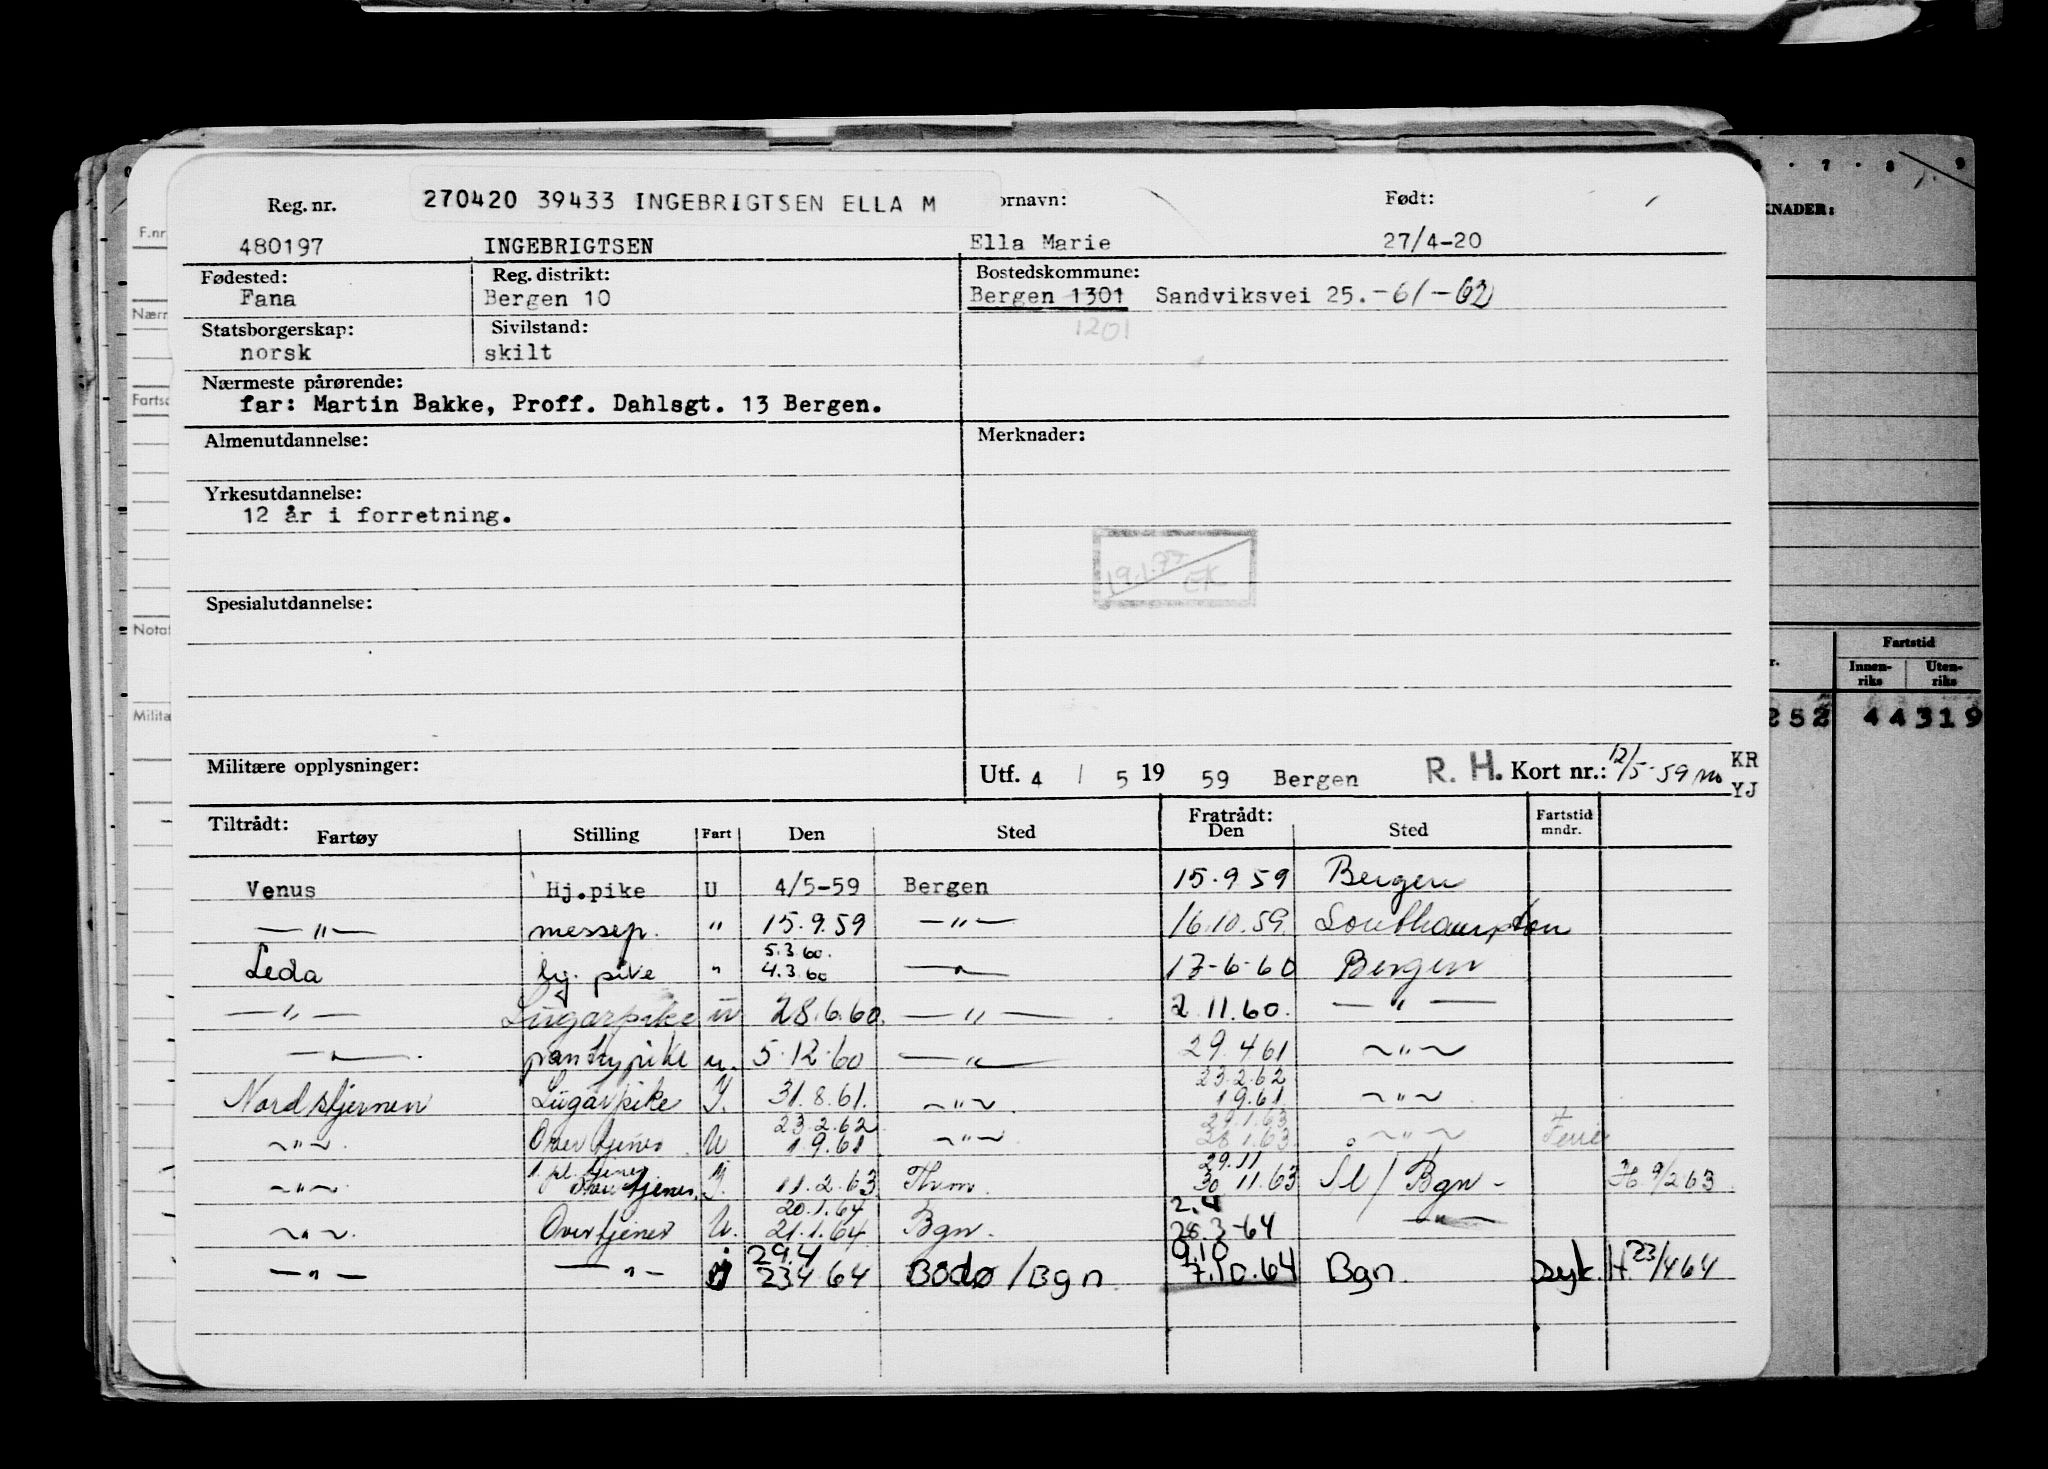 Reg. nr. 270420 39433 INGEBRIGTSEN ELLA M ornavn: Født:
480197 INGEBRIGTSEN Ella Marie 27/4-20
Fødested: Reg. distrikt: Bostedskommune:
Fana Bergen 10 Bergen 1301 Sandviksvei 25. -61-62
Statsborgerskap: Sivilstand: 1201
norsk skilt
Nærmeste pårørende:
far: Martin Bakke, Proff. Dahlsgt. 13 Bergen.
Almenutdannelse: Merknader:
Yrkesutdannelse:
12 år i forretning.
19.1.77 EK
Spesialutdannelse:
Militære opplysninger: Utf. 4 / 5 19 59 Bergen R. H. Kort nr.: 12/5-59 KR
YJ
Tiltrådt: Fratrådt:
Fartøy Stilling Fart Den Sted Den Sted Fartstid mndr.
Venus Hj.pike U 4/5-59 Bergen 15.9 59 Bergen
—"— messep. " 15.9.59 —"— 16.10.59. Southampton
5.3.60.
Leda lug. pike " 4.3.60 —"— 17-6-60 Bergen
—"— Lugarpike u 28.6.60. —"— 2.11.60. —"—
—"— pantrypike u. 5.12.60 —"— 29.4.61 —"—
23.2.62
Nordstjernen Lugarpike I. 31.8.61. —"— 1.9.61 —"—
23.2.62. 29.1.63
—"— Overtjener U 1.9.61 —"— 28.1.63. —"— Ferie
1. pl. tjener 29.11
—"— Overtjener. I. 11.2.63 Thrm. 30 11.63 Sl/Bgn - H. 9/2 63
20.1.64 2.4
—"— Overtjener U. 21.1.64 Bgn. 28.3-64 —"—
29.4 9.10
—"— —"— i 23.4 64 Bodø/Bgn 7.10.64 Bgn. syk. H. 23/4 64
F.nr
Nærr
Fartsc
Notat
Militæ
6 · 7 · 8 · 9
KNADER:
Fartstid
r. Innen-riks Uten-riks
252 44319